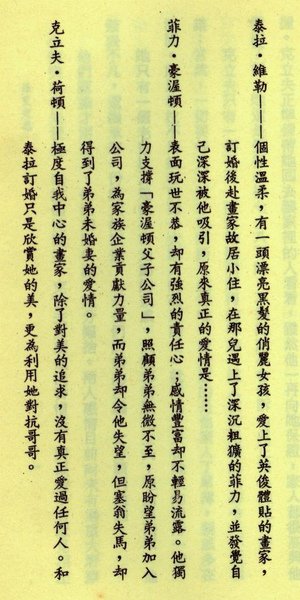 泰拉．維勒——個性溫柔，有一頭漂亮黑髮的俏麗女孩，愛上了英俊體貼的畫家，
訂婚後赴畫家故居小住，在那兒遇上了深沉粗獷的菲力，並發覺自
己深深被他吸引，原來真正的愛情是……
菲力．豪渥頓——表面玩世不恭，却有強烈的責任心；感情豐富却不輕易流露。他獨
力支撐「豪渥頓父子公司」，照顧弟弟無微不至，原盼望弟弟加入
公司，為家族企業貢獻力量，而弟弟却令他失望，但塞翁失馬，却
得到了弟弟未婚妻的愛情。
克立夫．荷頓——極度自我中心的畫家，除了對美的追求，沒有真正愛過任何人。和
泰拉訂婚只是欣賞她的美，更為利用她對抗哥哥。